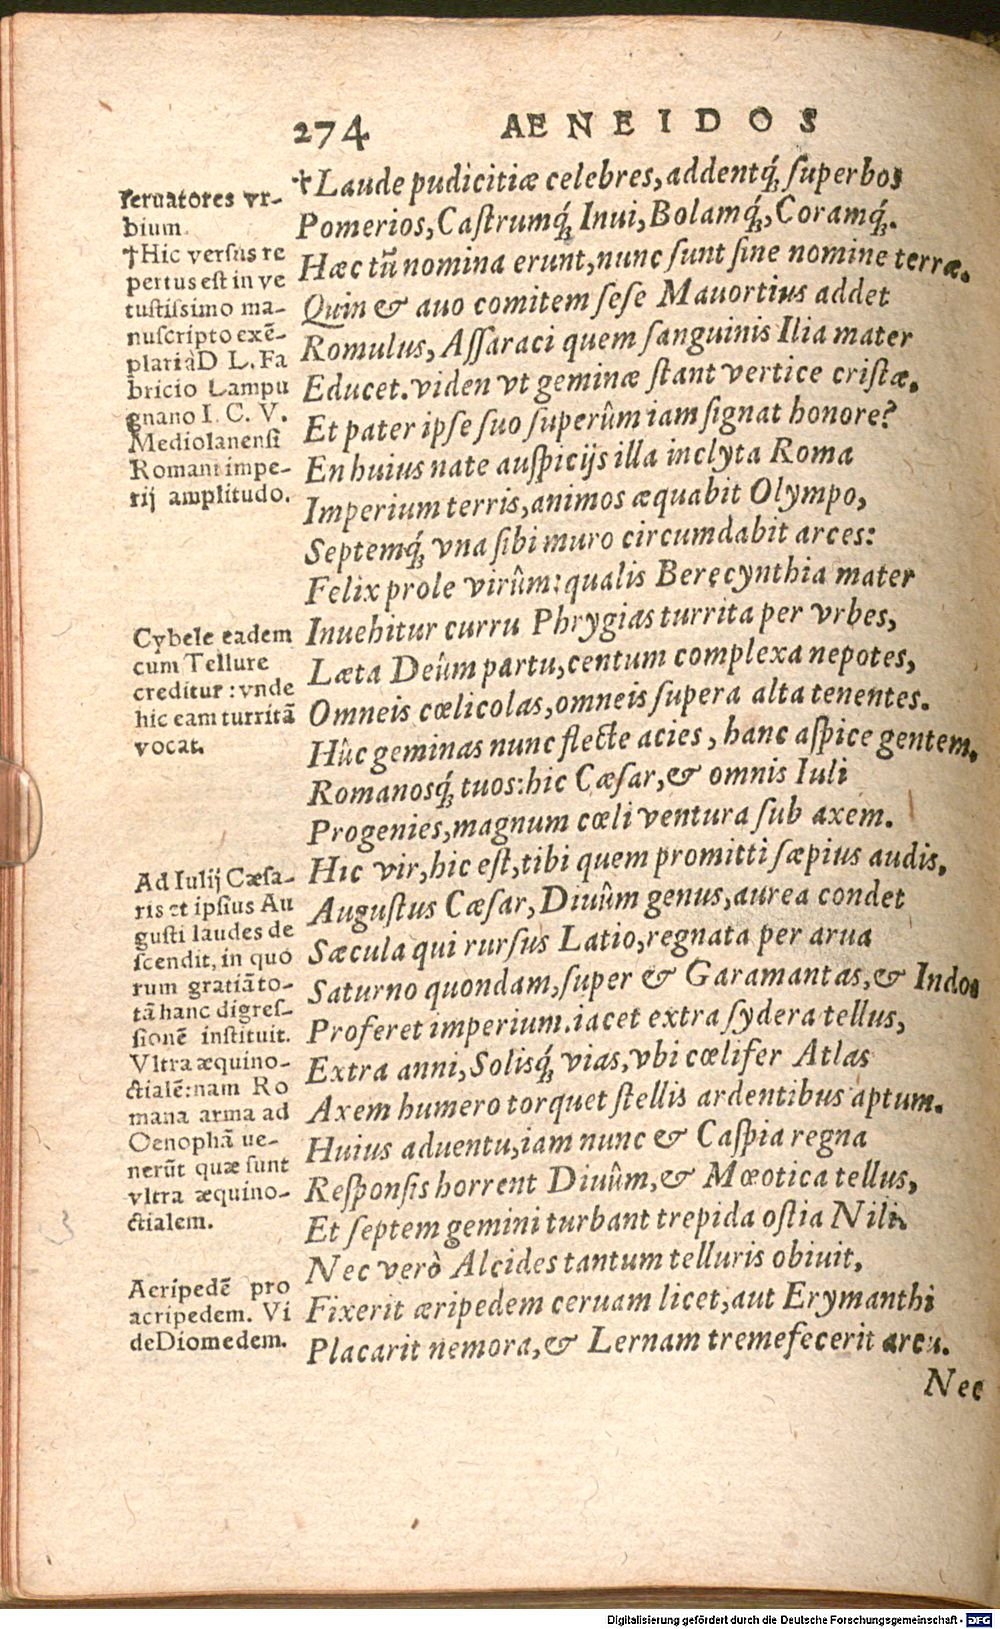 274 AENEIDOS
✝Laude pudicitiæ celebres, addentq́; ſuperbos
Pomerios, Caſtrumq́; Inui, Bolamq́;, Coramq́;.
Hæc tũ nomina erunt, nunc ſunt ſine nomine terræ.
Quin & auo comitem ſeſe Mauortius addet
Romulus, Aſſaraci quem ſanguinis Ilia mater
Educet. viden vt geminæ ſtant vertice criſtæ,
Et pater ipſe ſuo ſuperûm iam ſignat honore?
En huius nate auſpicijs illa inclyta Roma
Imperium terris, animos æquabit Olympo,
Septemq́; vna ſibi muro circumdabit arces:
Felix prole virûm: qualis Berecynthia mater
Inuehitur curru Phrygias turrita per vrbes,
Læta Deûm partu, centum complexa nepotes,
Omneis cœlicolas, omneis ſupera alta tenentes.
Hûc geminas nunc flecte acies, hanc aſpice gentem,
Romanosq́; tuos: hic Cæſar, & omnis Iuli
Progenies, magnum cœli ventura ſub axem.
Hic vir, hic eſt, tibi quem promitti ſæpius audis,
Auguſtus Cæſar, Diuûm genus, aurea condet
Sæcula qui rurſus Latio, regnata per arua
Saturno quondam, ſuper & Garamantas, & Indos
Proferet imperium. iacet extra ſydera tellus,
Extra anni, Solisq́; vias, vbi cœlifer Atlas
Axem humero torquet ſtellis ardentibus aptum.
Huius aduentu, iam nunc & Caſpia regna
Reſponſis horrent Diuûm, & Mœotica tellus,
Et ſeptem gemini turbant trepida oſtia Nili.
Nec verò Alcides tantum telluris obiuit,
Fixerit æripedem ceruam licet, aut Erymanthi
Placarit nemora, & Lernam tremefecerit arcu.
Nec
ſeruatores vr-
bium.
✝Hic verſus re
pertus eſt in ve
tuſtiſsimo ma-
nuſcripto exẽ-
plari à D L. Fa
bricio Lampu
gnano I. C. V.
Mediolanenſi
Romani impe-
rij amplitudo.
Cybele eadem
cum Tellure
creditur: vnde
hic eam turritã
vocat.
Ad Iulij Cæſa-
ris et ipſius Au
guſti laudes de
ſcendit, in quo
rum gratiã to-
tã hanc digreſ-
ſionẽ inſtituit.
Vltra æquino-
ctialẽ: nam Ro
mana arma ad
Oenophã ue-
nerũt quæ ſunt
vltra æquino-
ctialem.
Aeripedẽ pro
acripedem. Vi
de Diomedem.
Digitalisierung gefördert durch die Deutsche Forschungsgemeinschaft - DFG